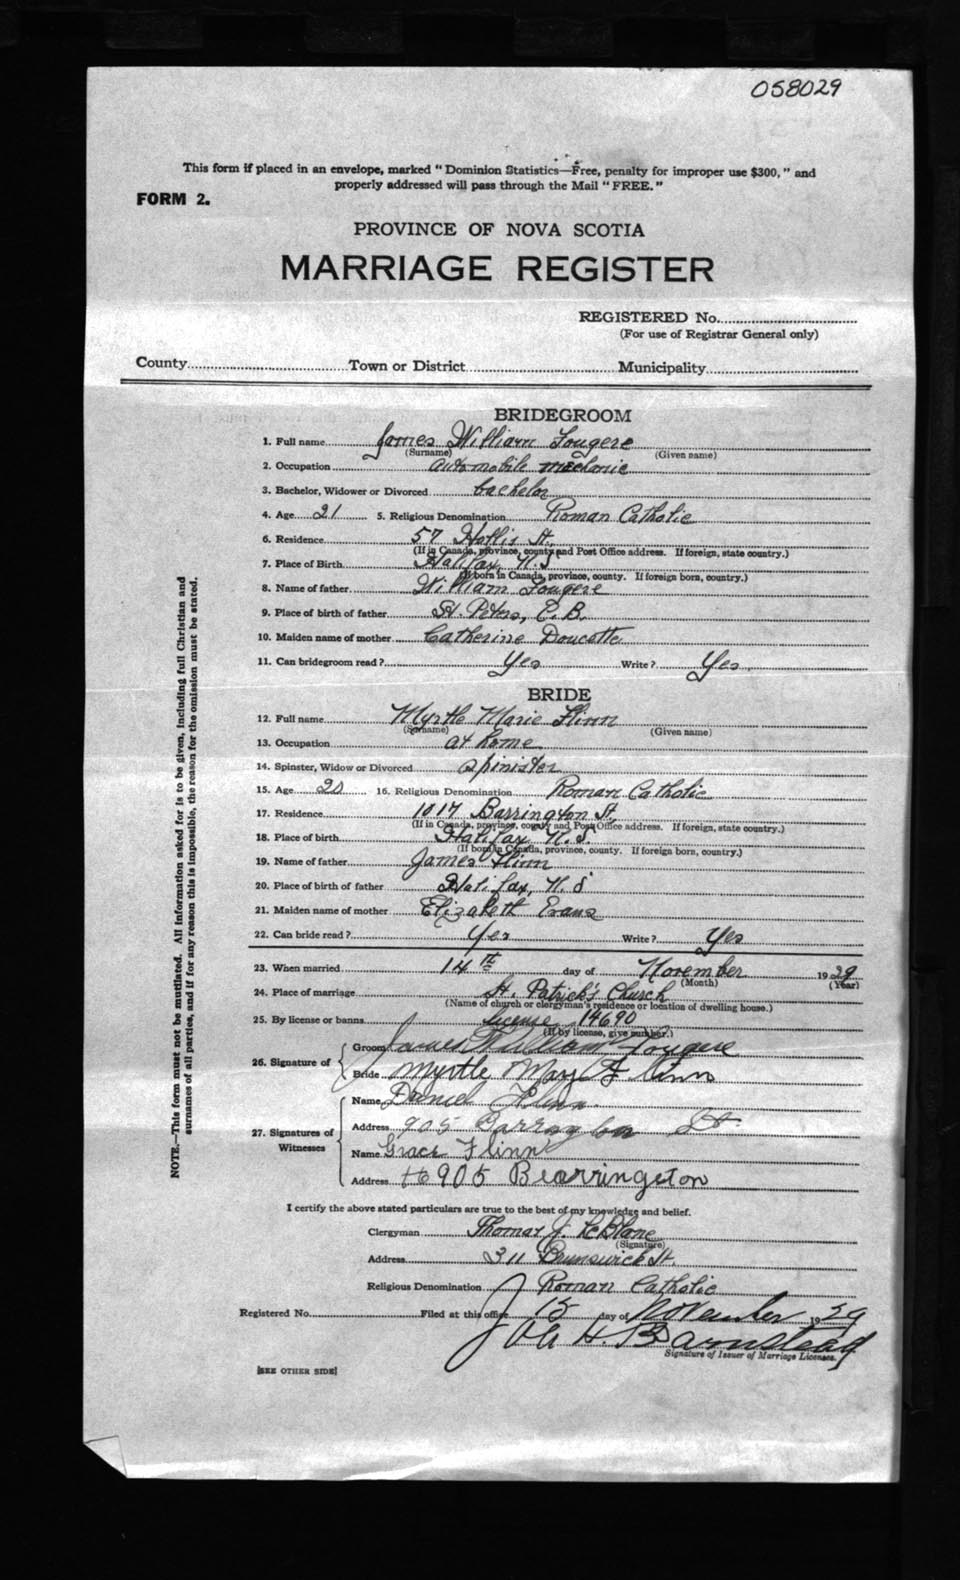 058029
This form if placed in an envelope, marked "Dominion Statistics—Free, penalty for improper use $300," and
properly addressed will pass through the Mail "FREE."
FORM 2.
PROVINCE OF NOVA SCOTIA
MARRIAGE REGISTER
REGISTERED No.
(For use of Registrar General only)
County Town or District Municipality
BRIDEGROOM
1. Full name James William Fougere
(Surname) (Given name)
2. Occupation automobile mechanic
3. Bachelor, Widower or Divorced bachelor
4. Age 21 5. Religious Denomination Roman Catholic
6. Residence 57 Hollis St.
(If in Canada, province, county and Post Office address. If foreign, state country.)
7. Place of Birth Halifax, N.S
(If born in Canada, province, county. If foreign born, country.)
8. Name of father William Fougere
9. Place of birth of father St. Peters, C.B.
10. Maiden name of mother Catherine Doucette
11. Can bridegroom read? Yes Write? Yes
BRIDE
12. Full name Myrtle Marie Flinn
(Surname) (Given name)
13. Occupation at home
14. Spinster, Widow or Divorced spinister
15. Age 20 16. Religious Denomination Roman Catholic
17. Residence 1017 Barrington St.
(If in Canada, province, county and Post Office address. If foreign, state country.)
18. Place of birth Halifax N.S.
(If born in Canada, province, county. If foreign born, country.)
19. Name of father James Flinn
20. Place of birth of father Halifax, N.S
21. Maiden name of mother Elizabeth Evans
22. Can bride read? Yes Write? Yes
23. When married 14th day of November 1929
(Month) (Year)
24. Place of marriage St. Patrick's Church
(Name of church or clergyman's residence or location of dwelling house.)
25. By license or banns license 14690
(If by license, give number.)
26. Signature of Groom James William Fougere
Bride Myrtle Mary Flinn
27. Signatures of Witnesses
Name Daniel Flinn
Address 905 Barrington St.
Name Grace Flinn
Address 905 Bearringston
I certify the above stated particulars are true to the best of my knowledge and belief.
Clergyman Thomas J. LeBlanc
(Signature)
Address 311 Brunswick St.
Religious Denomination Roman Catholic
Registered No. Filed at this office 15 day of November 1929
H. Barnstead
Signature of Issuer of Marriage Licenses.
[SEE OTHER SIDE]
NOTE.—This form must not be mutilated. All information asked for is to be given, including full Christian and
surnames of all parties, and if for any reason this is impossible, the reason for the omission must be stated.